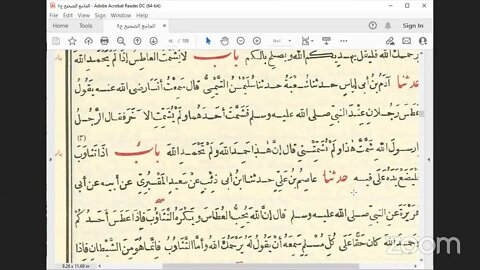 Adobe Acrobat Reader DC (64-bit)
File Edit View Sign Window Help
/ 189
رحمك الله فليقل يهديكم الله ويصلح بالكم باب لا يشمت العاطس إذا لم يحمد الله
حدثنا آدم بن أبي إياس حدثنا شعبة حدثنا سليمن التيمي قال سمعت أنسا رضي الله عنه يقول
عطس رجلان عند النبي صلى الله عليه وسلم فشمت أحدهما ولم يشمت الآخر فقال الرجل
يارسول الله شمت هذا ولم تشمتني قال إن هذا حمد الله ولم تحمد الله باب إذا تثاوب
فليضع يده على فيه حدثنا عاصم بن علي حدثنا ابن أبي ذئب عن سعيد المقبري عن أبيه عن أبي
هريرة عن النبي صلى الله عليه وسلم قال إن الله يحب العطاس ويكره التثاؤب فإذا عطس أحدكم
وحمد الله كان حقا على كل مسلم سمعه أن يقول له يرحمك الله وأما التثاؤب فإنما هو من الشيطان فإذا
8.26 x 11.69 in
zoom